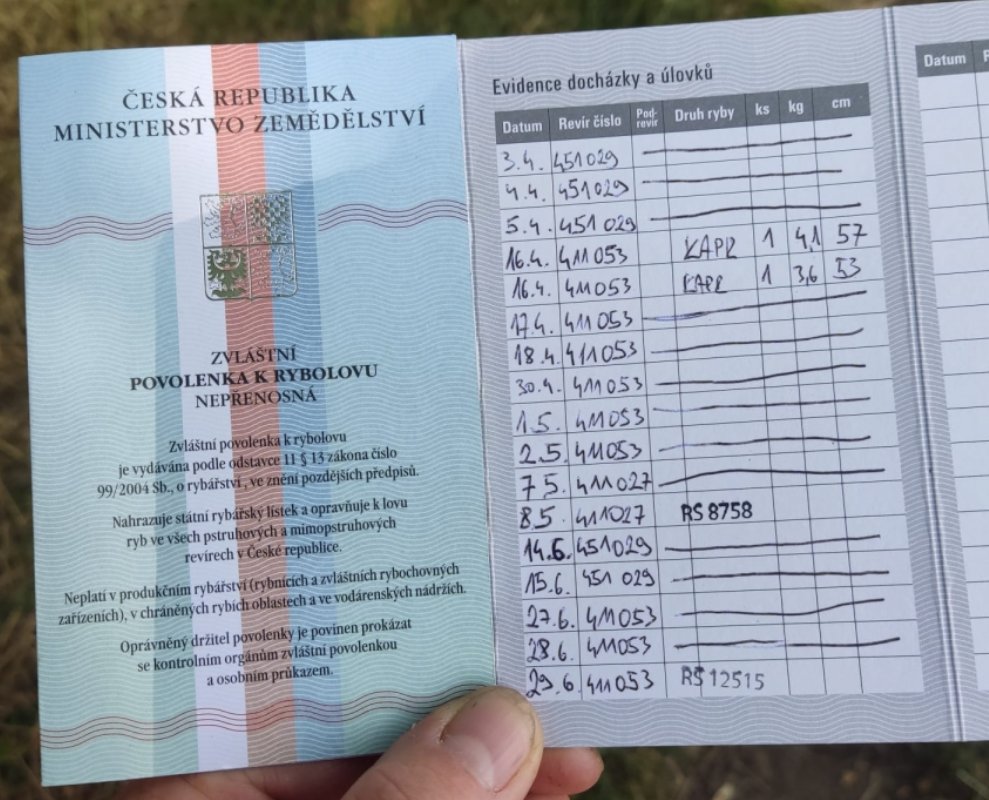 ČESKÁ REPUBLIKA
MINISTERSTVO ZEMĚDĚLSTVÍ
ZVLÁŠTNÍ
POVOLENKA K RYBOLOVU
NEPŘENOSNÁ
Zvláštní povolenka k rybolovu
je vydávána podle odstavce 11 § 13 zákona číslo
99/2004 Sb., o rybářství , ve znění pozdějších předpisů.
Nahrazuje státní rybářský lístek a opravňuje k lovu
ryb ve všech pstruhových a mimopstruhových
revírech v České republice.
Neplatí v produkčním rybářství (rybnících a zvláštních rybochovných
zařízeních), v chráněných rybích oblastech a ve vodárenských nádržích.
Oprávněný držitel povolenky je povinen prokázat
se kontrolním orgánům zvláštní povolenkou
a osobním průkazem.
Evidence docházky a úlovků
Datum Revír číslo Pod-revír Druh ryby ks kg cm
3.4. 451029
4.4. 451029
5.4. 451029
16.4. 411053 KAPR 1 4,1 57
16.4. 411053 KAPR 1 3,6 53
17.4. 411053
18.4. 411053
30.4. 411053
1.5. 411053
2.5. 411053
7 5. 411027
8.5. 411027 RS 8758
14.6. 451029
15.6. 451 029
27.6. 411053
28.6. 411053
29.6 411053 RS 12515
Datum